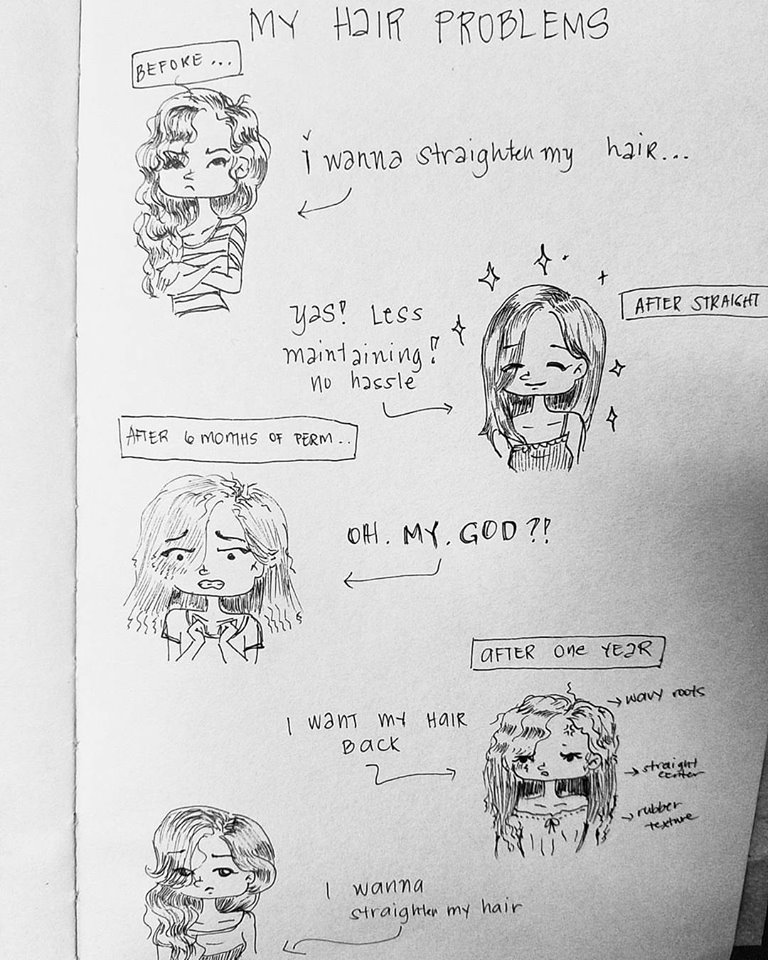 MY HAIR PROBLEMS
BEFORE...
i wanna straighten my hair...
AFTER STRAIGHT
YAS! LESS
maintaining!
no hassle
AFTER 6 MOMTHS OF PERM...
OH. MY. GOD?!
AFTER ONE YEAR
wavy roots
I WANT MY HAIR
BACK
straight
center
rubber
texture
I wanna
straighten my hair